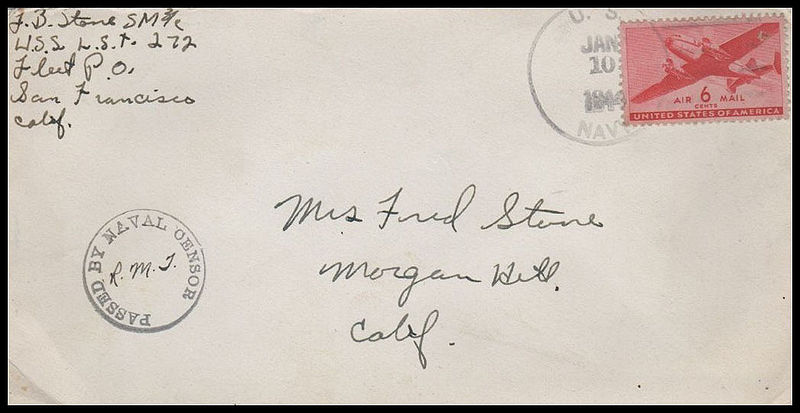 F. B. Stone SM 2/c
U.S.S. L.S.T. 272
Fleet P.O.
San Francisco
Calif.
U. S.
JAN
10
1944
NAVY
AIR 6 MAIL
CENTS
UNITED STATES OF AMERICA
Mrs Fred Stone
Morgan Hill.
Calif.
PASSED BY NAVAL CENSOR
R. M. T.